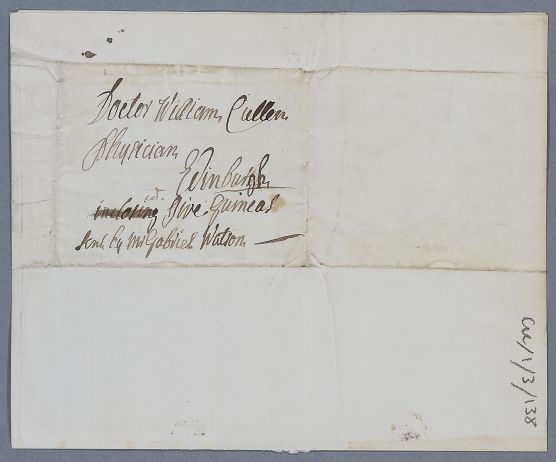 Doctor William Cullen
Physician
Edinburgh
ed
inclosing five Guineas
sent by Mr Gabriel Watson
Cul/1/3/138